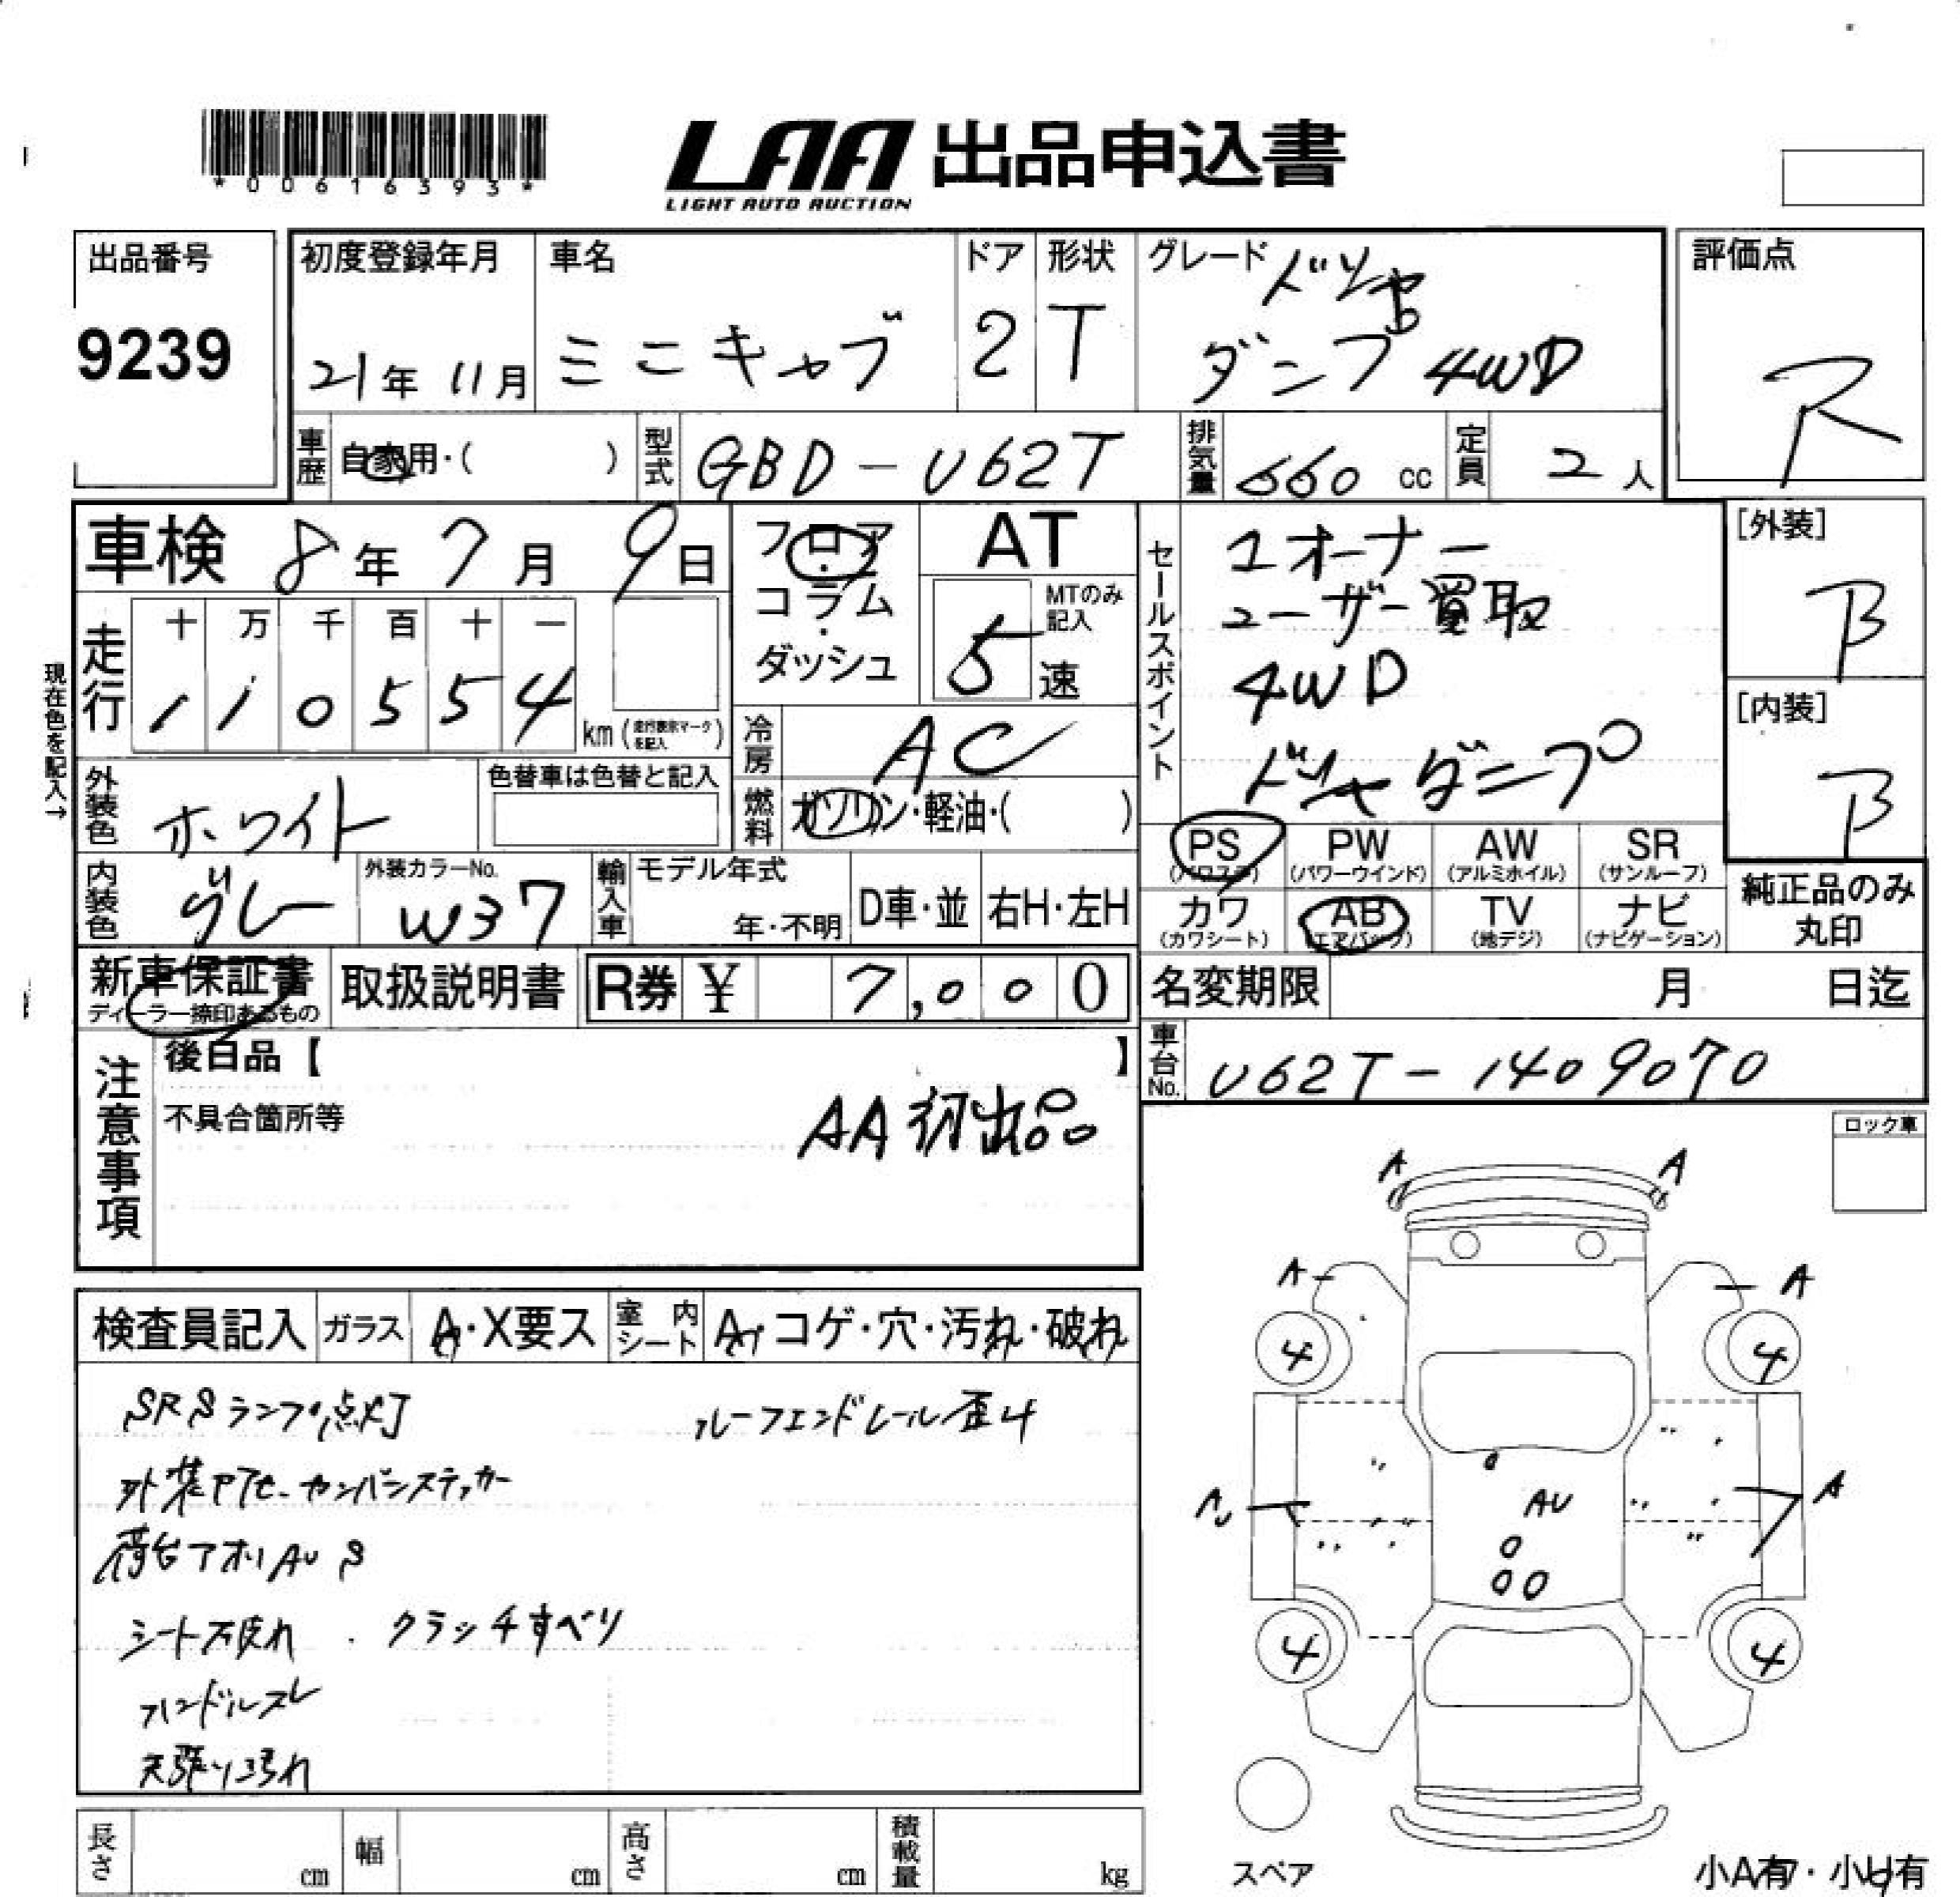 *00616393*
LAA 出品申込書
LIGHT AUTO AUCTION
出品番号
9239
初度登録年月
21年 11月
車名
ミニキャブ
ドア
2
形状
T
グレード ドソャ
ダンプ 4WD
評価点
R
車歴 自家用・( )
型式 GBD-U62T
排気量 660 cc
定員 2人
車検 8年 7月 9日
フロア・コラム・ダッシュ
AT
5速
MTのみ記入
セールスポイント
1オーナー
ユーザー買取
4WD
ドシャダンプ
[外装]
B
[内装]
B
現在色を記入→
走行
十 万 千 百 十 一
1 1 0 5 5 4
km (走行表示マークを記入)
冷房 AC
燃料 ガソリン・軽油・( )
外装色 ホワイト
色替車は色替と記入
内装色 グレー
外装カラーNo.
W37
輸入車 モデル年式
年・不明
D車・並
右H・左H
PS (パワステ)
PW (パワーウインド)
AW (アルミホイル)
SR (サンルーフ)
カワ (カワシート)
AB (エアバッグ)
TV (地デジ)
ナビ (ナビゲーション)
純正品のみ
丸印
新車保証書
ディーラー捺印あるもの
取扱説明書
R券 ¥ 7,000
名変期限 月 日迄
車台No. U62T-1409070
注意事項
後日品【 】
不具合箇所等
AA初出品
ロック車
検査員記入
ガラス A・X要ス
室内シート A・コゲ・穴・汚れ・破れ
SRSランプ点灯
ルーフエンドレール歪み
外装ヤケ カンバンステッカー
荷台アオリ AU S
シート破れ . クラッチすべり
ハンドルスレ
天張り汚れ
A A
A A
4 4
AU A
AU
4 4
スペア
小A有・小U有
長さ cm
幅 cm
高さ cm
積載量 kg